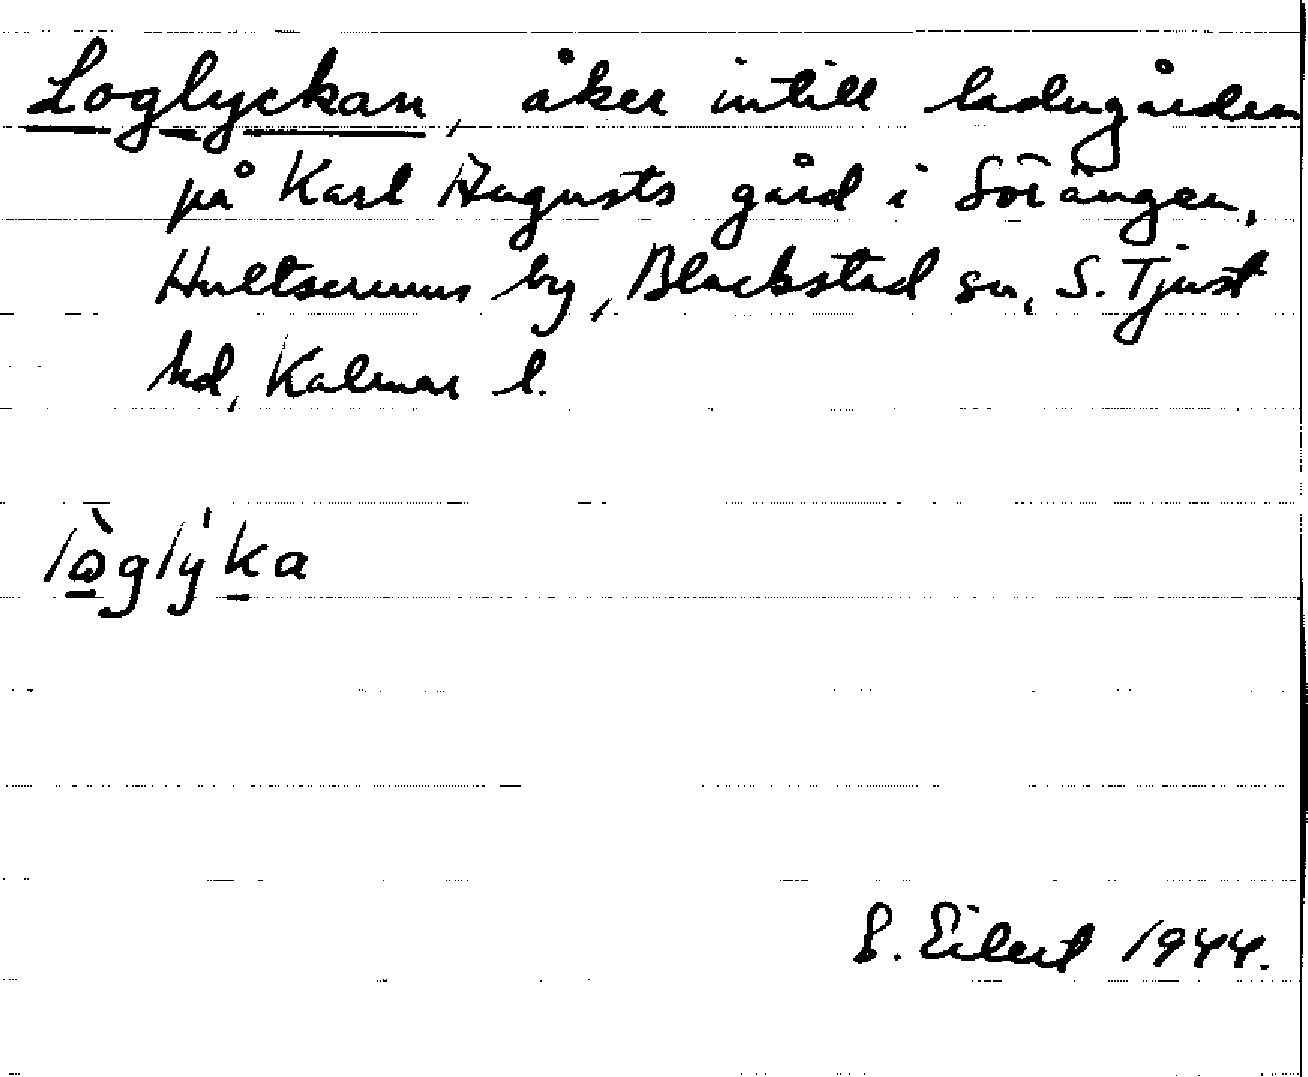 Loglyckan, åker intill ladugården
på Karl Augusts gård i Sörängen,
Hultserums by, Blackstad sn, S. Tjust
hd, Kalmar l.
lo̠̊̀glýk̠a
S. Eilert 1944.